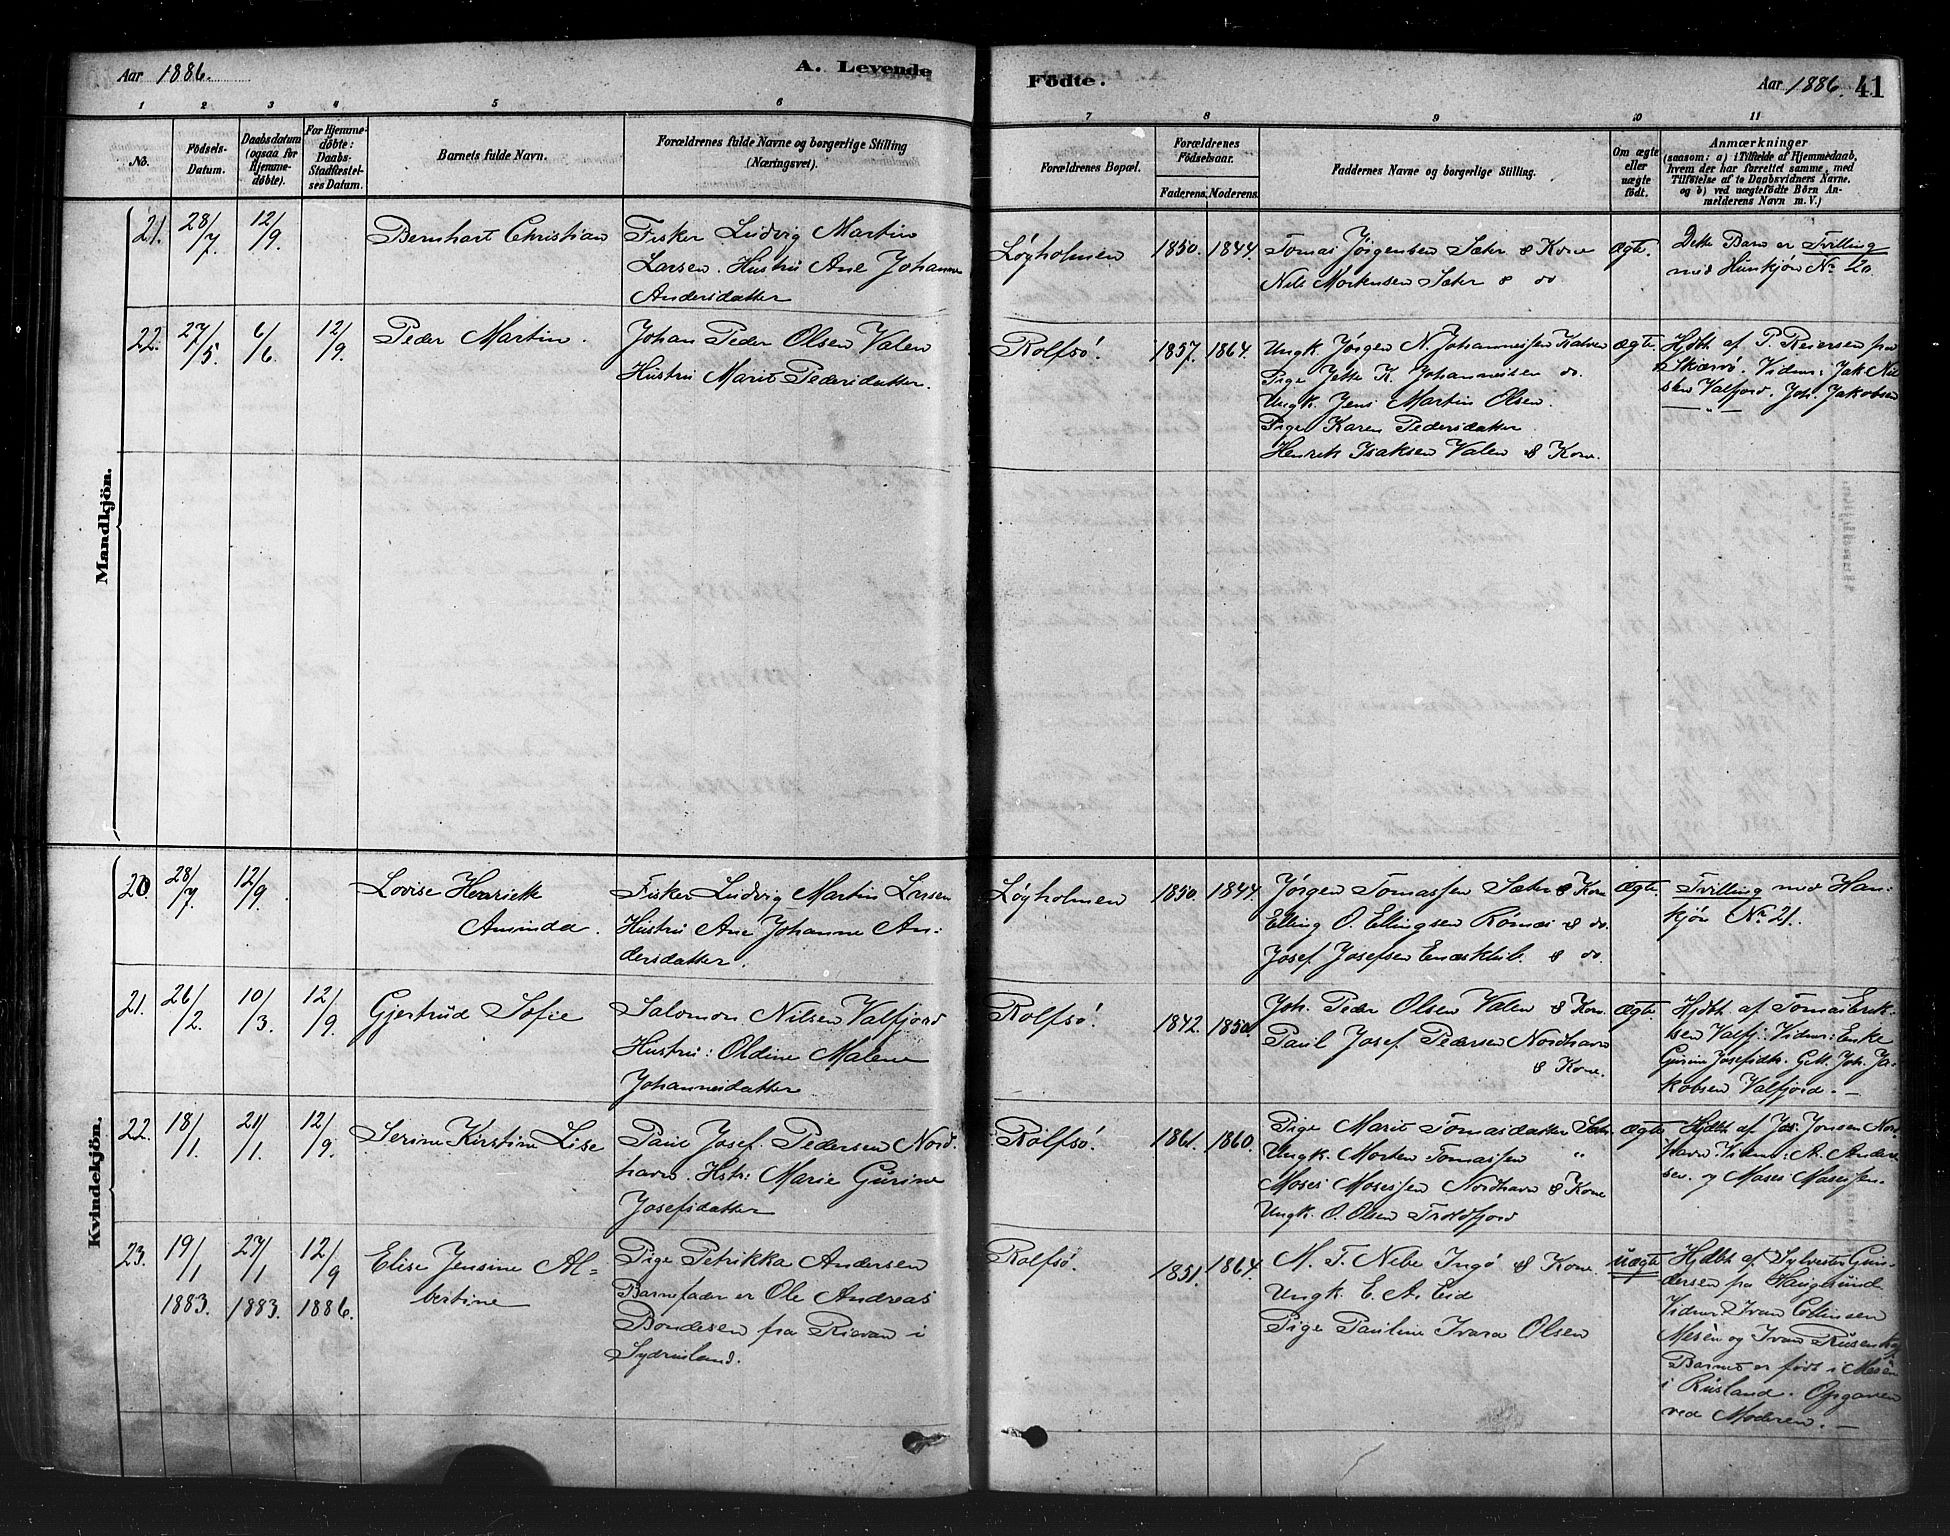 Aar 1886.
A. Levende
Födte.
Aar 1886.
41
1 2 3 4 5 6 7 8 9 10 11
No.
Födsels-
Datum.
Daabsdatum
(ogsaa for
Hjemme-
døbte).
For Hjemme-
døbte:
Daabs-
Stadfæstel-
ses Datum.
Barnets fulde Navn.
Forældrenes fulde Navne og borgerlige Stilling
(Næringsvei).
Forældrenes Bopæl.
Forældrenes
Födselsaar.
Faderens.
Moderens.
Faddernes Navne og borgerlige Stilling.
Om ægte
eller
uægte
födt.
Anmærkninger
(saasom: a) i Tilfælde af Hjemmedaab,
hvem der har forrettet samme, med
Tilföielse af to Daabsvidners Navne,
og b) ved uægtefödte Börn An-
melderens Navn m. V.)
Mandkjön.
21. 28/7 12/9.
Bernhart Christian
Fisker Ludvig Martin
Larsen. Hustru Ane Johanne
Andersdatter
Løgholmen
1850. 1844.
Tomas Jörgensen Sæter & Kone
Nils Mortensen Sæter & do
Ægte.
Dette Barn er Tvilling
med Hunkjön No 20.
22. 27/5 6/6. 12/9.
Peder Martin.
Johan Peder Olsen Valen
Hustru Marit Pedersdatter.
Rolfsö.
1857. 1864.
Ungk. Jörgen N. Johannessen Kalven
Pige Jette K. Johannesen do.
Ungk. Jens Martin Olsen.
Pige Karen Pedersdatter.
Henrik Isaksen Valen & Kone.
Ægte.
Hjdbt af P. Reiersen fra
Skjærvö. Vidner: Jak. Nil
sen Valfjord. Joh. Jakobsen
— " —
Kvindekjön.
20. 28/7 12/9.
Lovise Henriette
Aminda.
Fisker Ludvig Martin Larsen
Hustru Ane Johanne An:
dersdatter.
Løgholmen
1850. 1844.
Jörgen Tomassen Sæter & Kone
Elling O. Ellingsen Rörnæs & do.
Josef Josefsen & do.
Ægte.
Tvilling med Han:
kjön No 21.
21. 26/2. 10/3. 12/9.
Gjertrud Sofie
Salomon Nilsen Valfjord
Hustru: Oldine Malene
Johannesdatter.
Rolfsö.
1842. 1850.
Joh. Peder Olsen Valen & Kone.
Paul Josef Pedersen Nordhavn
& Kone.
Ægte.
Hjdbt af Tomas Erik-
sen Valfj: Vidner: Enke
Gurine Josefsdtr. Gift Joh. Ja-
kobsen Valfjord. —
22. 18/1. 21/1. 12/9.
Serine Kirstine Lise
Paul Josef Pedersen Nord-
havn. Hstr: Marie Gurine
Josefsdatter
Rolfsö.
1861. 1860.
Pige Marit Tomasdatter Sæter
Ungk. Morten Tomassen "
Moses Mosessen Nordhavn & Kone
Ungk. O. Olsen Troldfjord
Ægte
Hjdbt af Jos. Jonsen Nor
havn. Vidner: A. Ander
sen. og Moses Mosessen.
23. 19/1 27/1 12/9
1883. 1883. 1886.
Elise Jensine Al-
bertine
Pige Petrikka Andersen
Barnefader er Ole Andreas
Bondesen fra i
Rolfsö.
1851. 1864.
M. T. Nebe Ingö & Kone
Ungk. E. A. Eid
Pige Pauline Ivara Olsen
uægte
Hjdbt af Sylvester Gun-
dersen fra Haugesund
Vidner Ivan
Mesén og Ivan
Barnet er födt i Mesén
i Rusland. Opgaven
ved Moderen. —